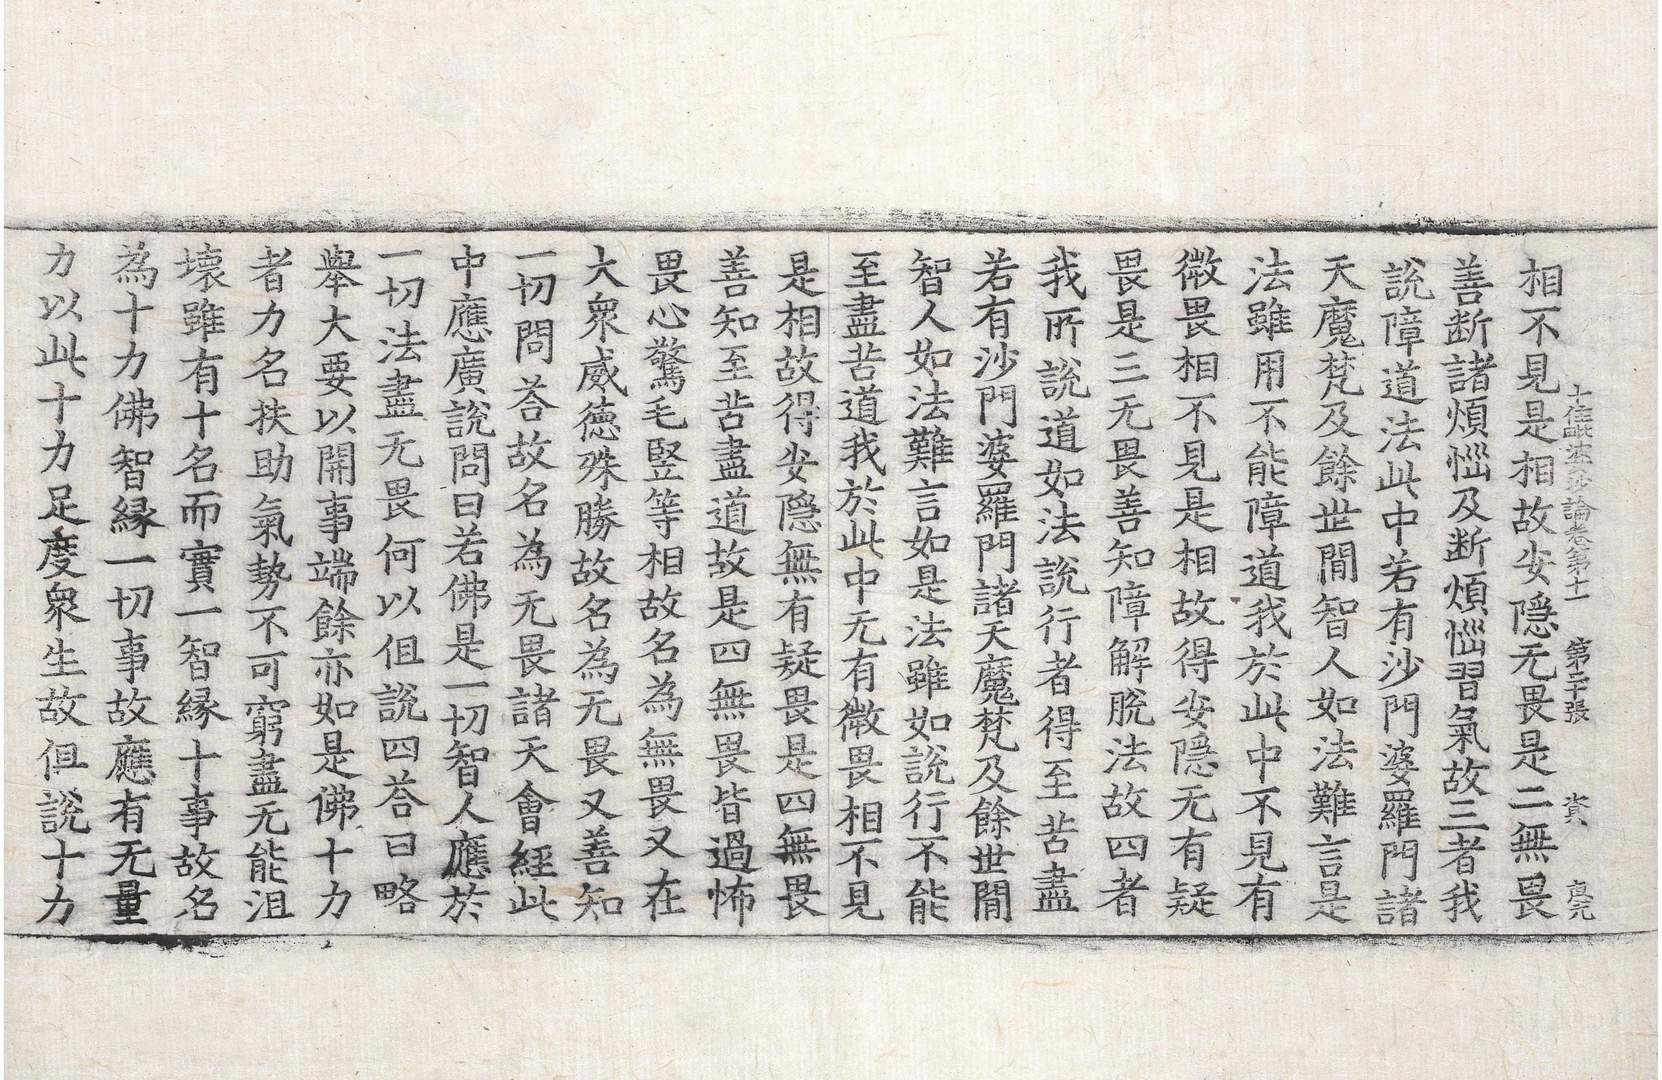 十住毗婆沙論卷第十一 第二張 資 真元
相不見是相故安隱无畏是二無畏
善斷諸煩惱及斷煩惱習氣故三者我
說障道法此中若有沙門婆羅門諸
天魔梵及餘世閒智人如法難言是
法雖用不能障道我於此中不見有
微畏相不見是相故得安隱无有疑
畏是三无畏善知障解脫法故四者
我所說道如法說行者得至苦盡
若有沙門婆羅門諸天魔梵及餘世閒
智人如法難言如是法雖如說行不能
至盡苦道我於此中无有微畏相不見
是相故得安隱無有疑畏是四無畏
善知至苦盡道故是四無畏皆過怖
畏心驚毛竪等相故名為無畏又在
大衆威德殊勝故名為无畏又善知
一切問荅故名為无畏諸天會經此
中應廣說問曰若佛是一切智人應於
一切法盡无畏何以但說四荅曰略
舉大要以開事端餘亦如是佛十力
者力名扶助氣勢不可窮盡无能沮
壞雖有十名而實一智緣十事故名
為十力佛智緣一切事故應有无量
力以此十力足度衆生故但說十力